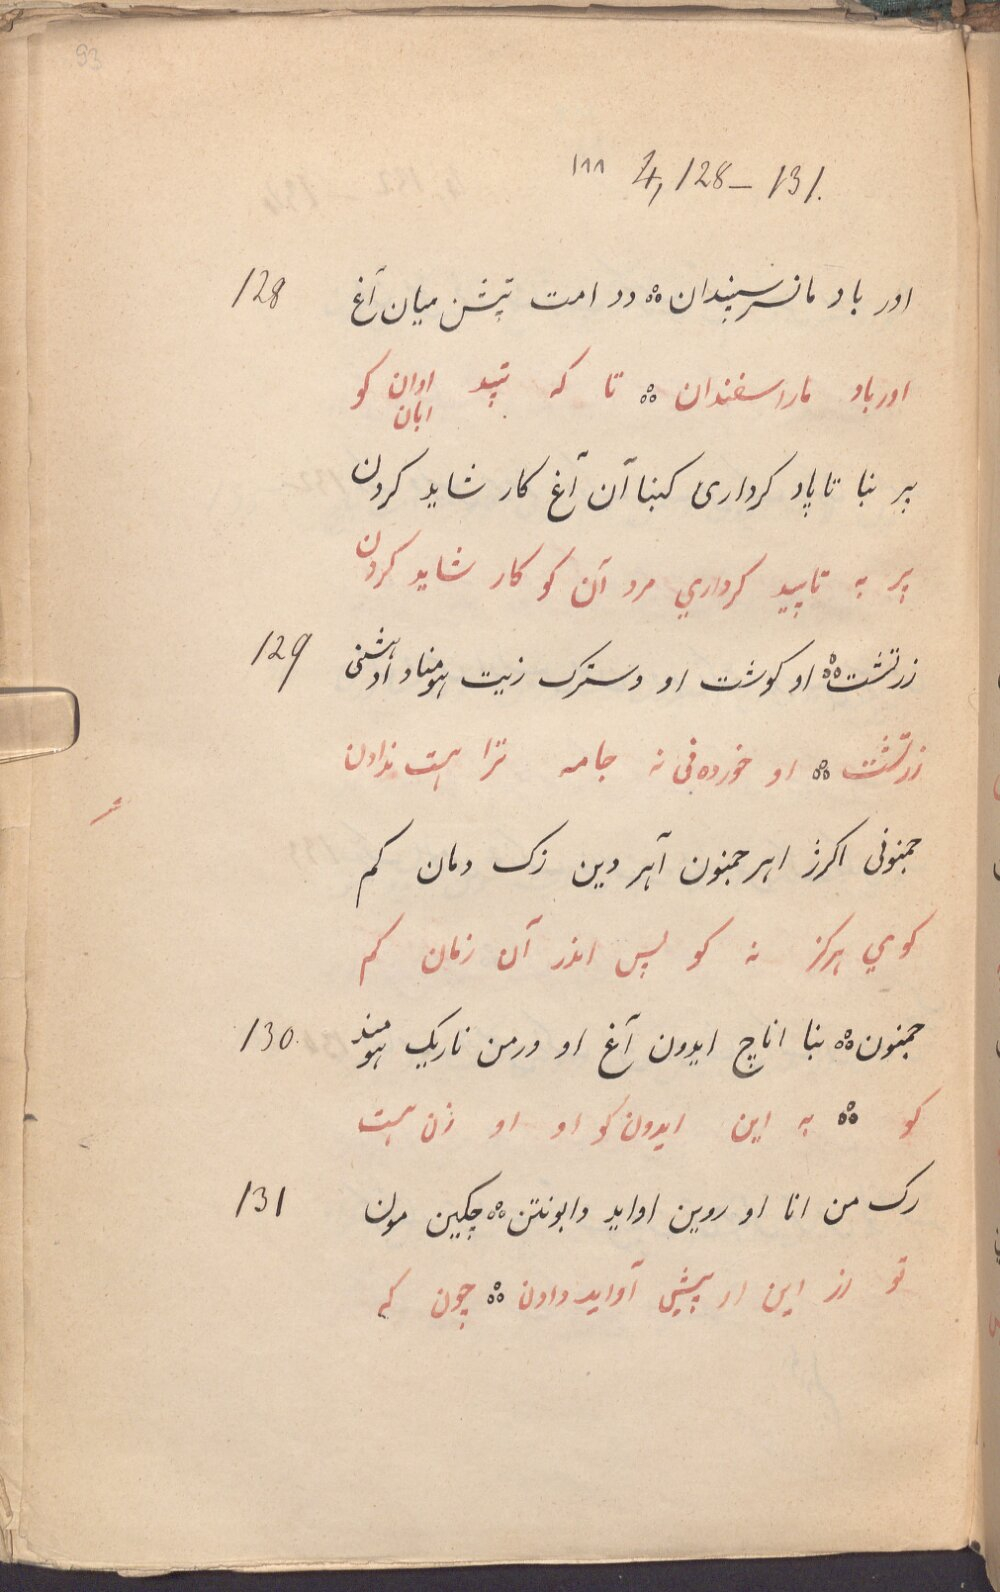 93
١٨٨ 4, 128–131.
اور باد مانسرسپندان ؞ دد امت تپشن میان آغ 128
اورباد ماراسفندان ؞ تا که تپید اوان کو
ابان
پر بنا تاپاد کرداری کبنا آن آغ کار شاید کردن
پر به تاپید کرداري مرد آن کو کار شاید کردن
زرتشت ؞ او کوشت او وسترک زیت هومناد ادهشنی 129
زرتشت ؞ او خورده‌نی نه جامه ترا هست ندادن
جمنونی اکرژ اهر جمنون آهر دین زک دمان کم
کوي هرکز نه کو پس اندر آن زمان کم
جمنون ؞ بنا اناچ ایدون آغ او ورمن ناریک هومند 130
کو ؞ به این ایدون کو او او زن هست
رک من انا او روین اواید دابونتن ؞ چکین مون 131
تو از این او پیشی آواید دادن ؞ چون که